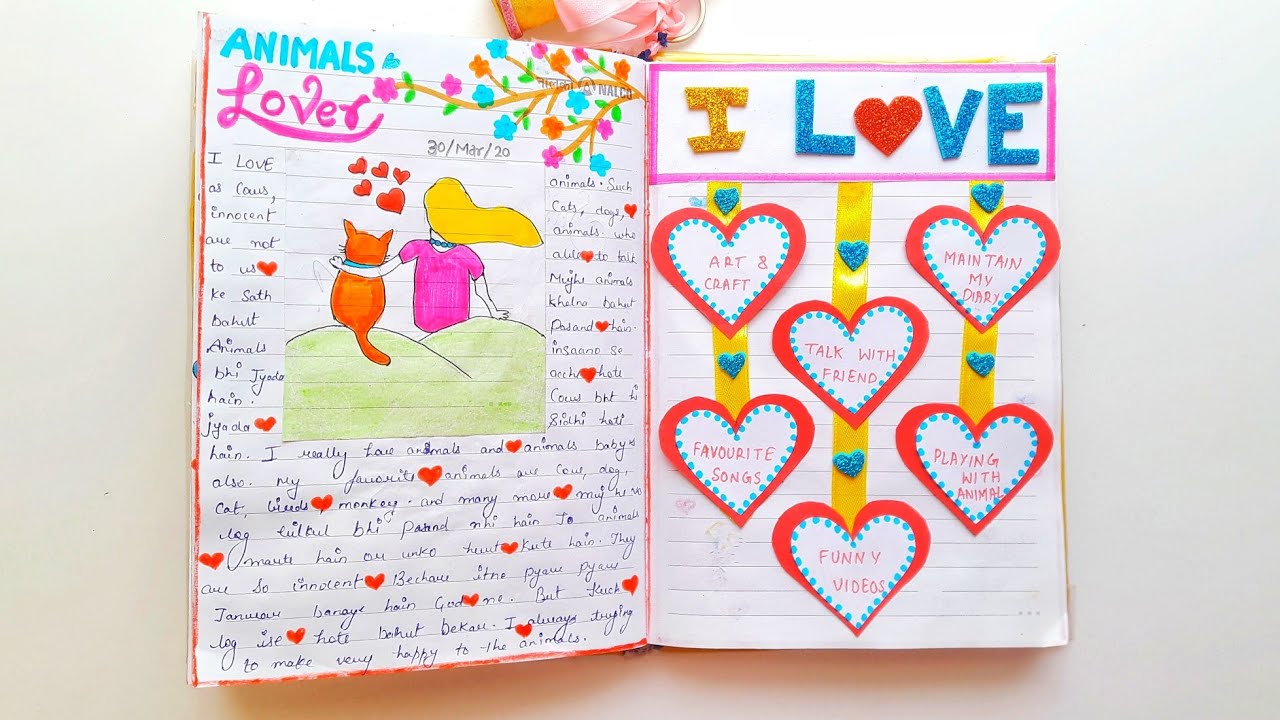 ANIMALS
Lover
नालको NALCO
30/Mar/20
I LOVE animals. Such
as Cows, Cats, dogs,
innocent animals. who
are not able to talk
to us Mujhe animals
ke Sath khelna bahut
Bahut Pasand hain.
Animals insaano se
bhi Jyada acche hote
hain. Cows bht hi
jyada Sidhi hoti
hain. I really love animals and animals babys
also. My favorite animals are cow, dog,
cat, birds monkey. and many more
log bilkul bhi Pasand nhi hain Jo animals
maarte hain or unko hurt hain. They
are So innocent Bechare itne pyare pyare
Janwar banaye hain God ne. But Kuch
log ise hote bahut bekar. I always trying
to make very happy to the animals.
I LOVE
ART &
CRAFT
MAINTAIN
MY
DIARY
TALK WITH
FRIEND
FAVOURITE
SONGS
PLAYING
WITH
ANIMAL
FUNNY
VIDEOS